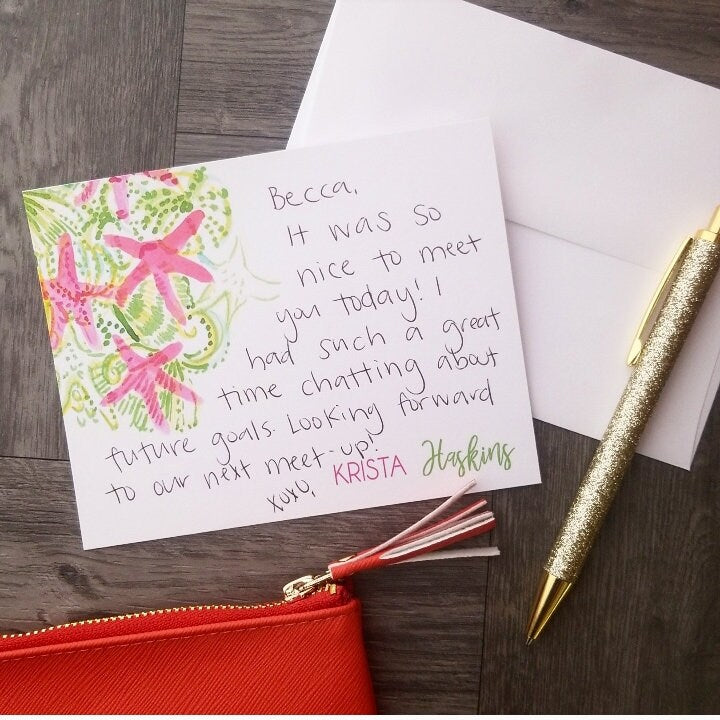 Becca,
It was so
nice to meet
you today! I
had such a great
time chatting about
future goals. Looking forward
to our next meet-up!
xoxo, KRISTA Haskins